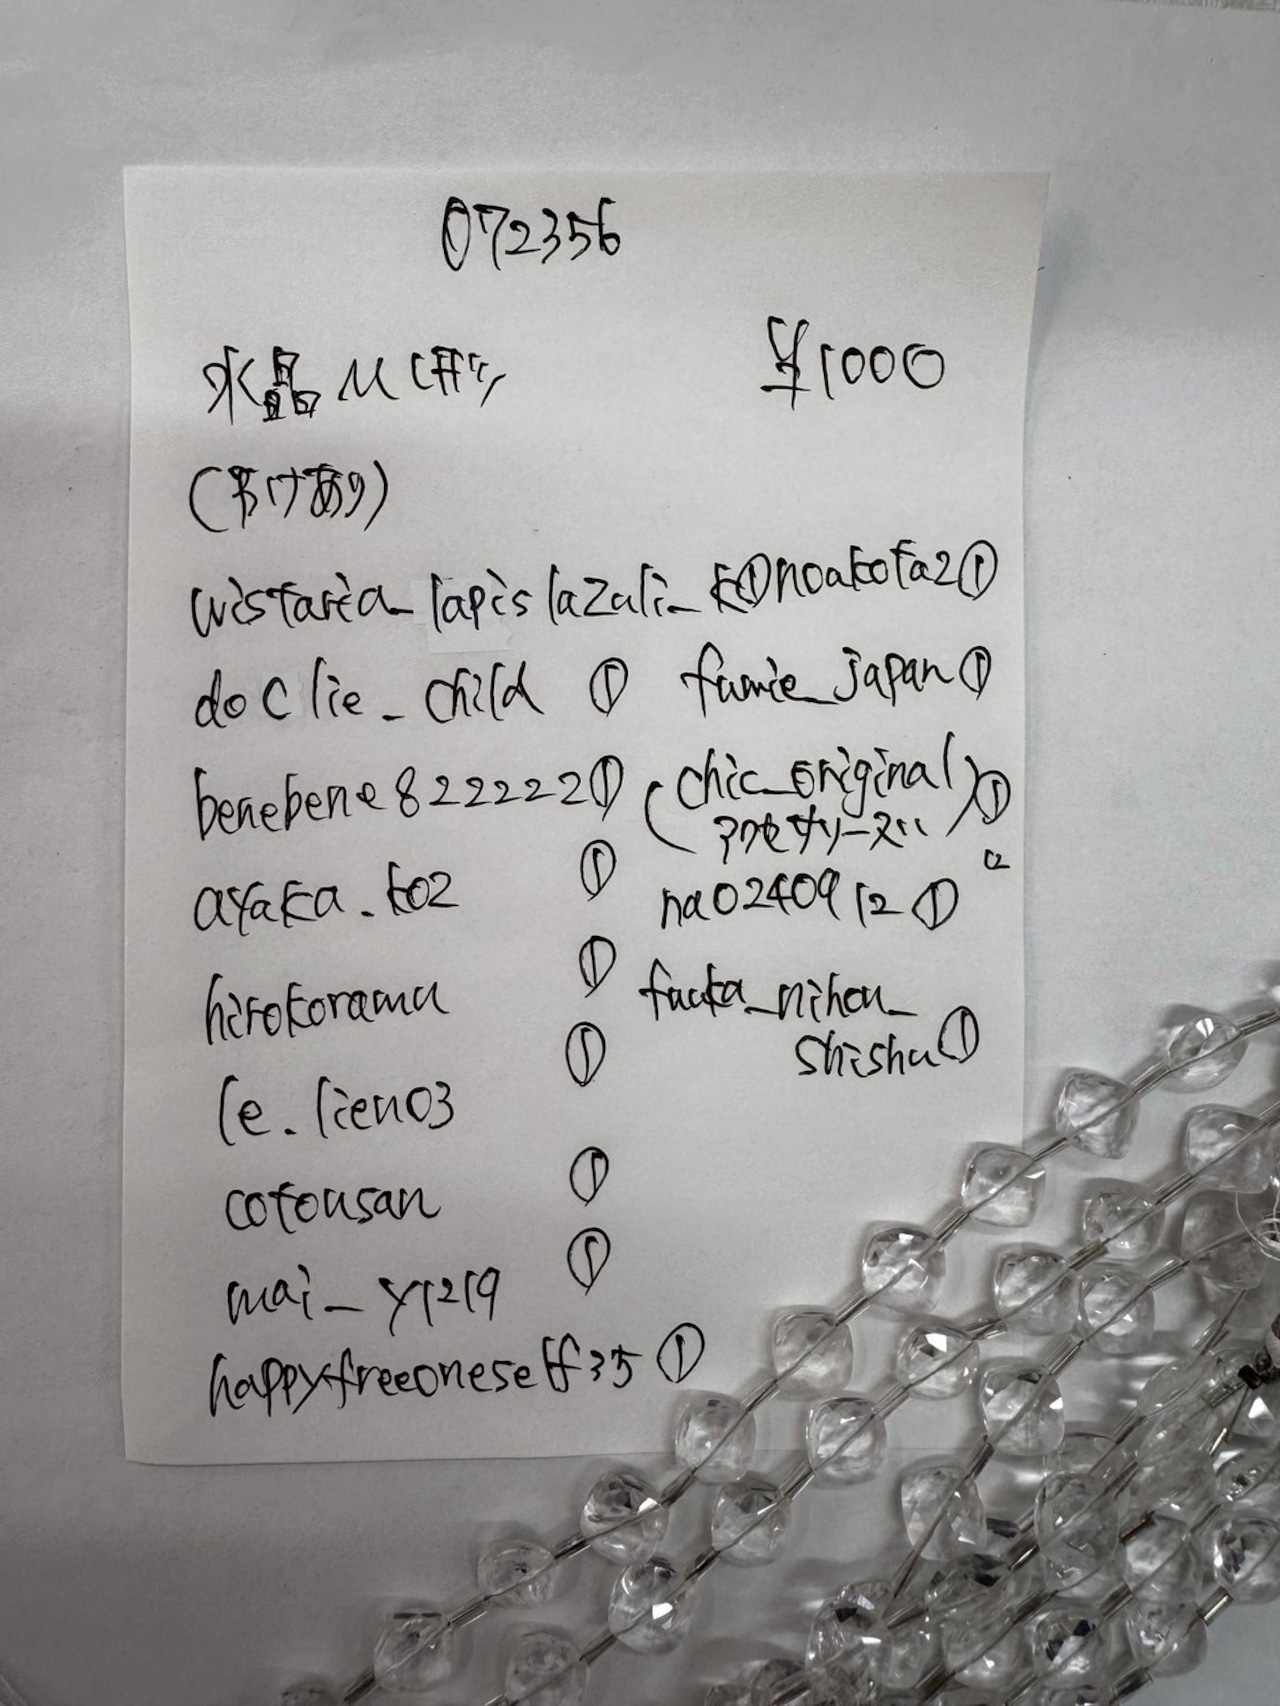 072356
水晶 M ¥1000
(わけあり)
wistaria_lapislazuli_k①
noakota2①
doclie_child ①
fumie_japan①
benebene822222①
(chic_original)①
アクセサリース
ayaka.ko2 ①
nao240912①
hirokorama ①
fuuka_nihon_
shishu①
le.lien03 ①
cotousan ①
mai_y1219 ①
happyfreeoneself35 ①